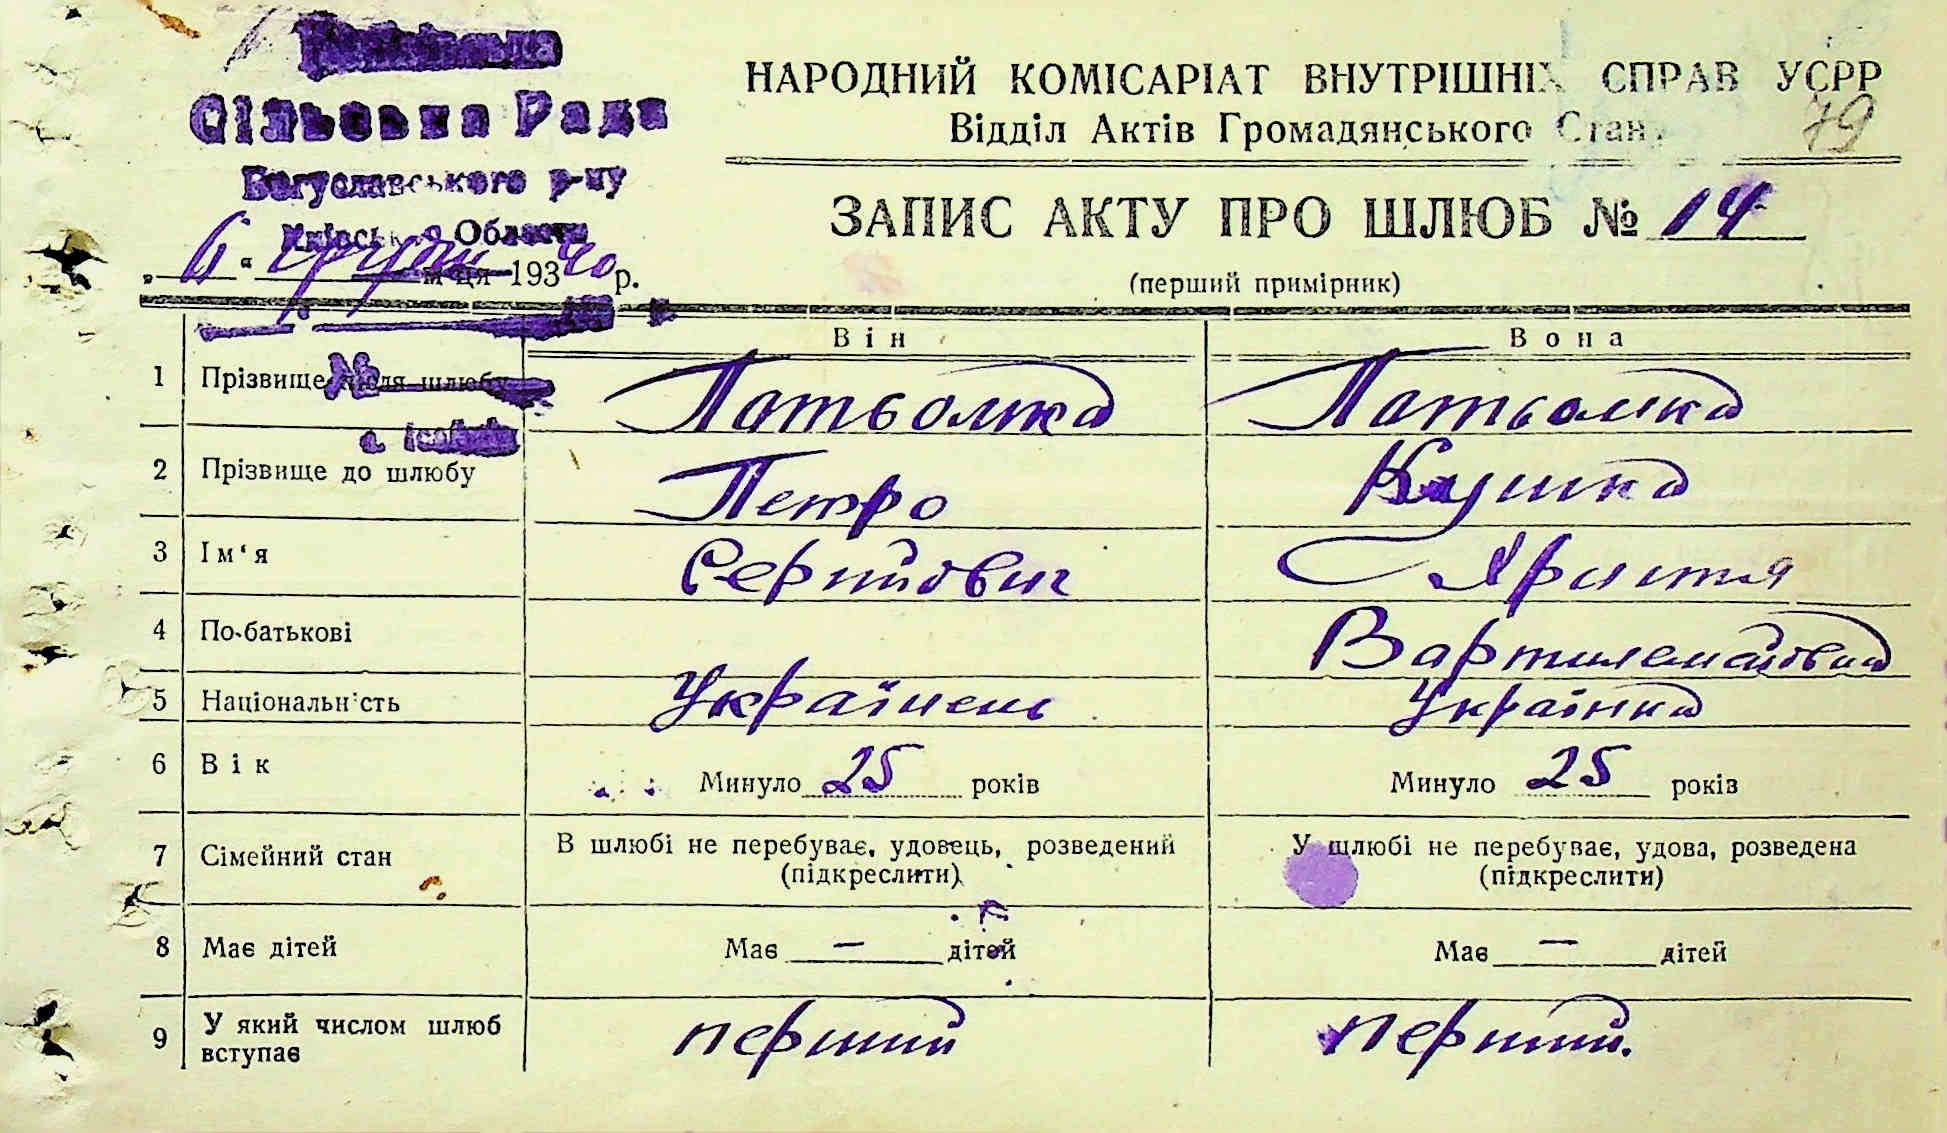 Сільська Рада
Богуславського р-ну
Київської Області
НАРОДНИЙ КОМІСАРІАТ ВНУТРІШНІХ СПРАВ УСРР
Відділ Актів Громадянського Стан
79
ЗАПИС АКТУ ПРО ШЛЮБ № 14
(перший примірник)
„6“ грудня м-ця 1940 р.
Він Вона
1 Прізвище після шлюбу Патьомка Патьомка
2 Прізвище до шлюбу Петро Кушка
3 Ім‘я Серпийович Христя
4 По-батькові Вартиломейовна
5 Національність Українець Українка
6 Вік Минуло 25 років Минуло 25 років
7 Сімейний стан В шлюбі не перебуває, удовець, розведений (підкреслити) У шлюбі не перебуває, удова, розведена (підкреслити)
8 Має дітей Має — дітей Має — дітей
9 У який числом шлюб вступає перший перший.